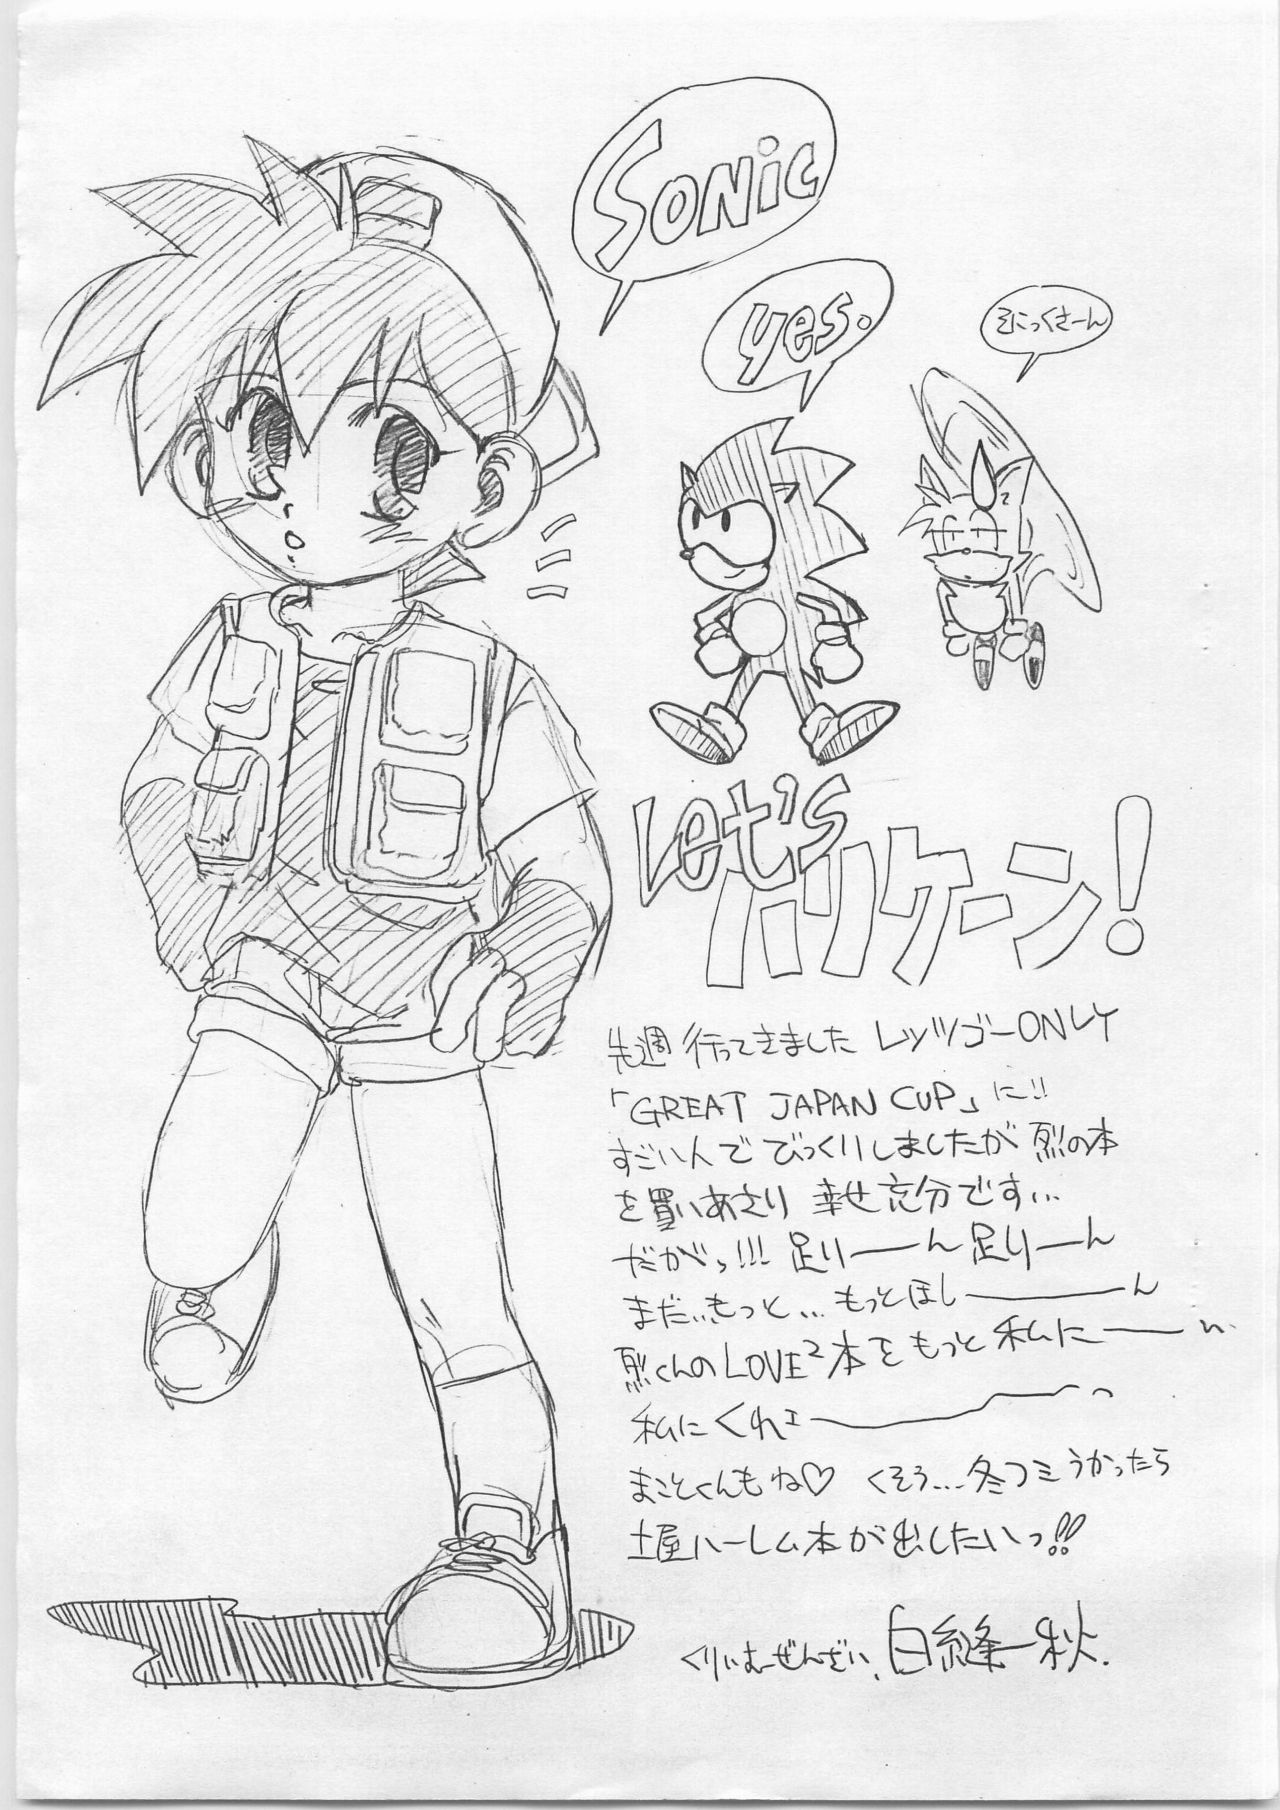 Sonic
yes.
そにっくさーん
Let's
ハリケーン!
先週行ってきました レッツゴーONLY
「GREAT JAPAN CUP」に!!
すごいんでびっくりしましたが 烈の本
を買いあさり 幸せ充分です…
だがっ!!! 足りーん足りーん
まだ…もっと…もっとほしーーん
烈くんのLOVE²本をもっと私にーーい
私にくれェーーーっ
まことくんもね♡ くそう…冬コミうかったら
土屋ハーレム本が出したいっ!!
くりぃむーぜんざい、白縫一秋.